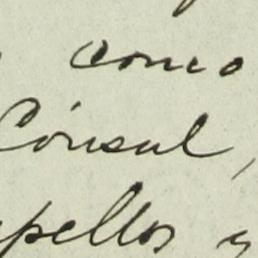 como
Cónsul,
pellos y